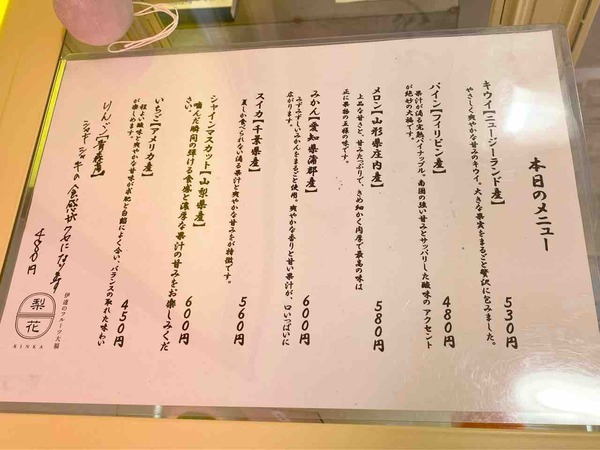 本日のメニュー
キウイ【ニュージーランド産】
やさしく爽やかな甘みのキウイ。大きな果実をまるごと贅沢に包みました。
530円
パイン【フィリピン産】
果汁が滴る完熟パイナップル。南国の強い甘みとサッパリした酸味のアクセント
が絶妙の大福です。
480円
メロン【山形県庄内産】
上品な甘さと、甘みたっぷりで、きめ細かく肉厚で最高の味は
正に果物の王様の味です。
580円
みかん【愛知県蒲郡産】
みずみずしいみかんをまるごと使用。爽やかな香りと甘い果汁が、口いっぱいに
広がります。
600円
スイカ【千葉県産】
夏しか食べられない滴る果汁と爽やかな甘みをが特徴です。
560円
シャインマスカット【山梨県産】
噛んだ瞬間の弾ける食感と濃厚な果汁の甘みをお楽しみくだ
600円
いちご【アメリカ産】
程よい酸味と爽やかな甘味が求肥と白餡によく合い、バランスの取れた味わい
が楽しめます。
450円
りんご【青森産】
シャキシャキの食感がクセになります
480円
伊達のフルーツ大福
梨花
RINKA